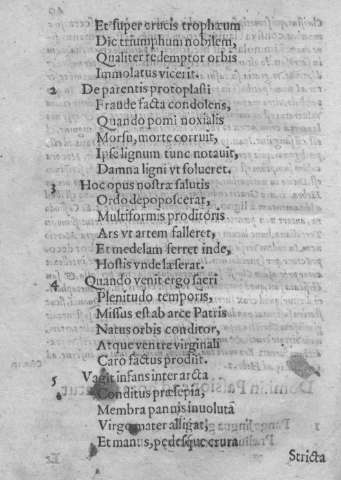 Et super crucis trophæum
Dic triumphum nobilem,
Qualiter redemptor orbis
Immolatus vicerit.
2 De parentis protoplasti
Fraude facta condolens,
Quando pomi noxialis
Morsu, morte corruit,
Ipse lignum tunc notauit,
Damna ligni vt solueret.
3 Hoc opus nostræ salutis
Ordo depoposcerat,
Multiformis proditoris
Ars vt artem falleret,
Et medelam ferret inde,
Hostis vnde læserat.
4 Quando venit ergo sacri
Plenitudo temporis,
Missus est ab arce Patris
Natus orbis conditor,
Atque ventre virginali
Caro factus prodijt.
5 Vagit infans inter arcta
Conditus præsepia,
Membra pannis inuoluta
Virgo mater alligat,
Et manus, pedesque crura
Stricta